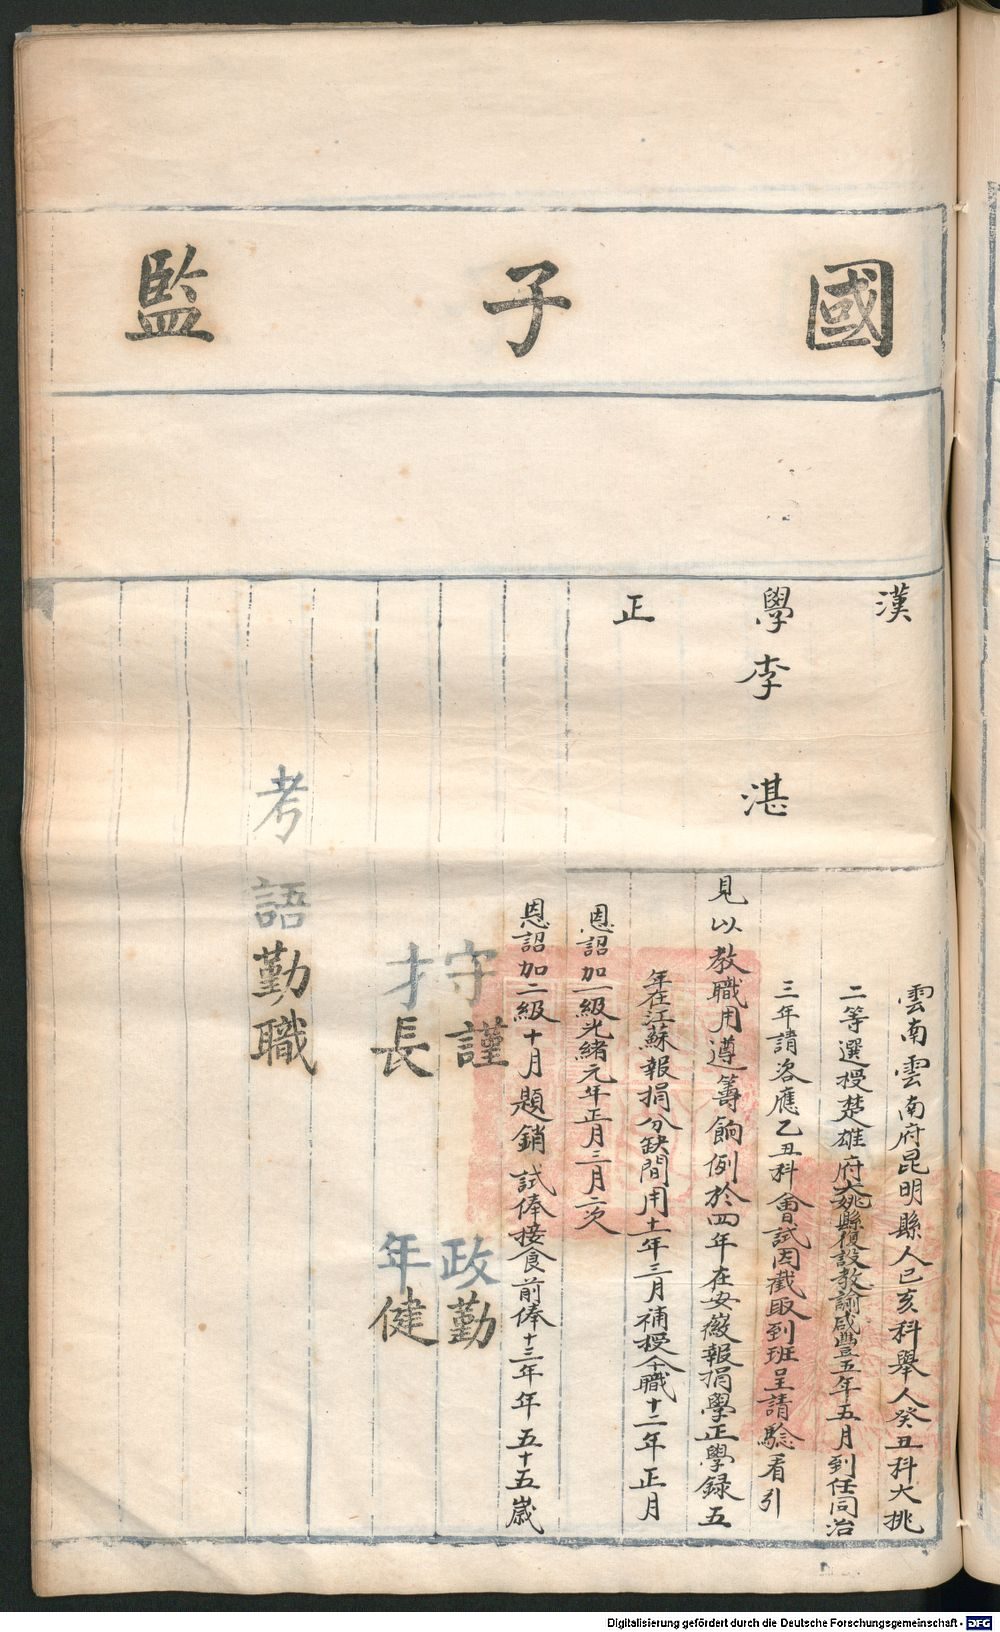 國子監
漢學正
李湛
雲南雲南府昆明縣人己亥科舉人癸丑科大挑
二等選授楚雄府大姚縣復設教諭咸豐五年五月到任同治
三年請咨應乙丑科會試因截取到班呈請驗看引
見以教職用遵籌餉例於四年在安徽報捐學正學錄五
年在江蘇報捐分缺間用十一年三月補授今職十二年正月
恩詔加一級光緒元年正月三月二次
恩詔加二級十月題銷試俸接食前俸十三年年五十五歲
守謹 政勤
才長 年健
考語勤職
Digitalisierung gefördert durch die Deutsche Forschungsgemeinschaft - DFG